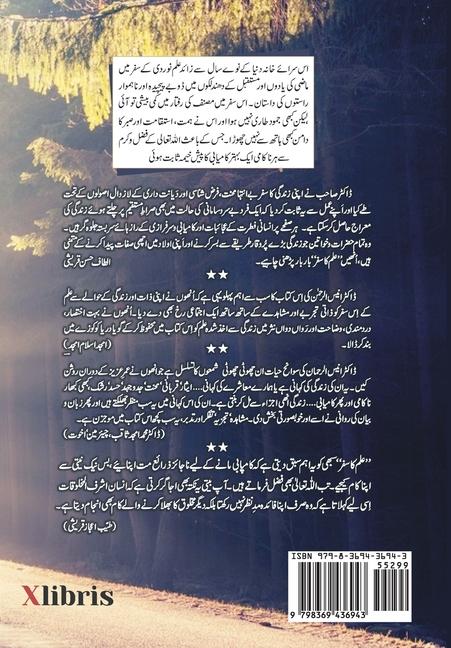 اس سرائے خانہ دنیا کے نوے سال سے زائد علم نوردی کے سفر میں
ماضی کی یادوں اور مستقبل کے دھندلکوں میں ڈوبے پیچیدہ اور ناہموار
راستوں کی داستان۔ اس سفر میں مصنف کی رفتار میں کمی بیشی تو آئی
لیکن کبھی جمود طاری نہیں ہوا اور اس نے ہمت، استقامت اور صبر کا
دامن کبھی ہاتھ سے نہیں چھوڑا۔ جس کے باعث اللہ تعالی کے فضل و کرم
سے ہر ناکامی ایک بہتر کامیابی کا پیش خیمہ ثابت ہوئی
ڈاکٹر صاحب نے اپنی زندگی کا سفر بے انتہا محنت، فرض شناسی اور دیانت داری کے لازوال اصولوں کے تحت
طے کیا اور اپنے عمل سے یہ ثابت کر دیا کہ ایک فرد بے سروسامانی کی حالت میں بھی صراط مستقیم پر چلتے ہوئے زندگی کی
معراج حاصل کر سکتا ہے۔ ہر سطح پر انسانی فطرت کے عجائبات اور کامیابی و سرفرازی کے راز ہائے سربستہ جلوہ گر ہیں۔
وہ تمام حضرات و خواتین جو زندگی بڑے پروقار طریقے سے بسر کرنے اور اپنی اولاد میں اچھی صفات پیدا کرنے کے متمنی
ہیں، انھیں "علم کا سفر" بار بار پڑھنی چاہیے۔ الطاف حسن قریشی
★★
ڈاکٹر انیس الرحمٰن کی اس کتاب کا سب سے اہم پہلو یہی ہے کہ انھوں نے اپنی ذات اور زندگی کے حوالے سے علم
کے اس سفر کو ذاتی تجربے اور مشاہدے کے ساتھ ساتھ ایک اجتماعی رخ بھی دے دیا ہے انھوں نے بہت اختصار،
دردمندی، وضاحت اور رواں دواں نثر میں زندگی سے اخذ شدہ علم کو اس کتاب میں محفوظ کر کے گویا دریا کو کوزے میں
بند کر ڈالا۔ (امجد اسلام امجد)
★★
ڈاکٹر انیس الرحمان کی سوانح حیات ان چھوٹی چھوٹی شمعوں کا تسلسل ہے جو انھوں نے عمر عزیز کے دوران روشن
کیں۔ یہ ان کی زندگی کی کہانی ہے یا ہمارے معاشرے کی کہانی.... ایثار، قربانی، محنت، جدوجہد، حسد، رشک، کبھی کبھار
ناکامی اور پھر کامیابی.... زندگی انھی اجزا سے مل کر بنتی ہے۔ ان کی اس کہانی میں یہ سب منظر جھلکتے ہیں اور پھر زبان و
بیان کی روانی نے اسے اور خوبصورتی بخش دی۔ مشاہدہ، تجزیہ، تفکر اور تدبر، یہ سب کچھ اس کتاب میں موجزن ہے۔
(ڈاکٹر محمد امجد ثاقب، چیئرمین اخوت)
★★
"علم کا سفر" سبھی کو یہ اہم سبق دیتی ہے کہ کامیابی پانے کے لیے ناجائز ذرائع مت اپنائیے، بس نیک نیتی سے
اپنا کام کیجیے۔ تب اللہ تعالی بھی فضل فرماتے ہیں۔ آپ بیتی یہ نکتہ بھی اجاگر کرتی ہے کہ انسان اشرف المخلوقات
اسی لیے کہلاتا ہے کہ وہ صرف اپنا فائدہ مدنظر نہیں رکھتا بلکہ دیگر مخلوق کا بھلا کرنے والے کام بھی انجام دیتا ہے۔
(طیب اعجاز قریشی)
ISBN 979-8-3694-3694-3
55299
9 798369 436943
Xlibris